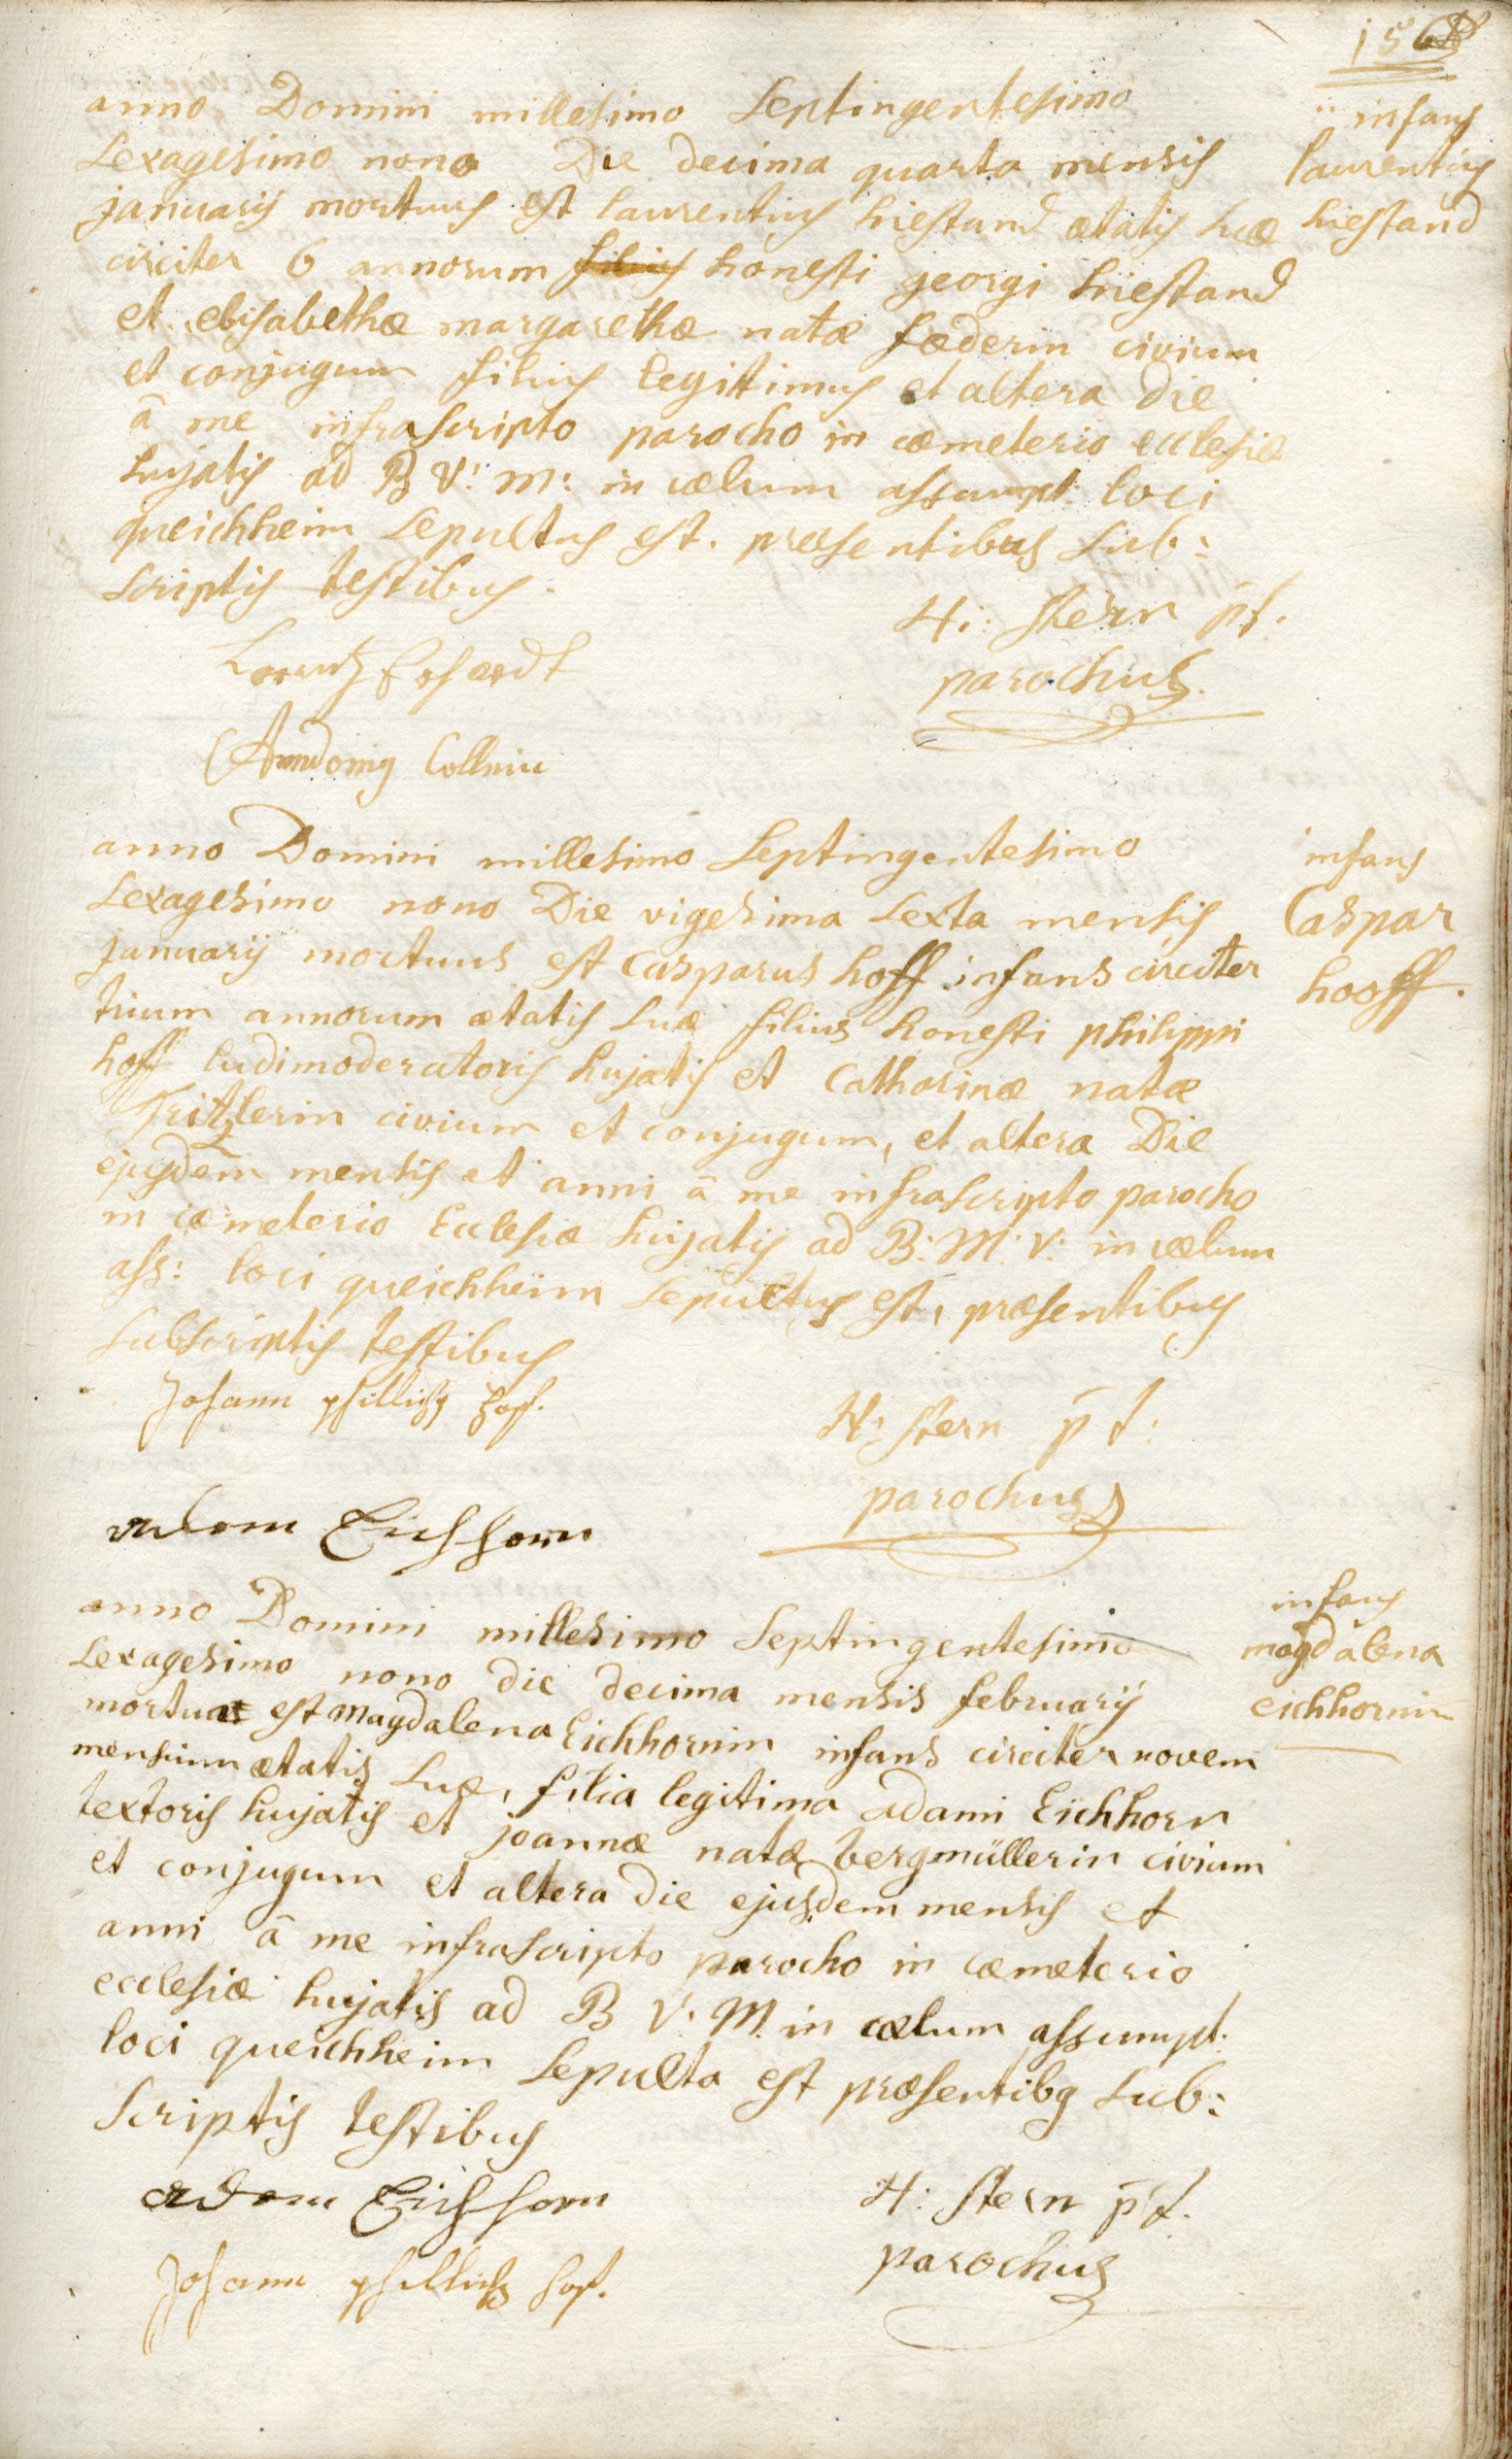 anno Domini millesimo Septingentesimo
Sexagesimo nono Die decima quarta mensis
januarij mortuus est laurentius hiestand ætatis suæ
circiter 6 annorum filius honesti georgi hiestand
et elisabethæ margarethæ natæ fæderin civium
et conjugum filius legitimus et altera die
â me infrascripto parocho in cæmeterio ecclesiæ
hujatis ad B V: M: in cælum assumpt: loci
queichheim Sepultus est. præsentibus Sub:
scriptis testibus.
infans
laurentius
hiestand
H: Stern p.t.
parochus.
Lorentz Erhardt
anno Domini millesimo Septingentesimo
Sexagesimo nono Die vigesima Sexta mensis
januarij mortuus est Casparus hoff infans circiter
trium annorum ætatis suæ filius honesti philippi
hoff ludimoderatoris hujatis et Catharinæ natæ
Tritzlerin civium et conjugum, et altera Die
ejusdem mensis et anni â me infrascripto parocho
in cæmeterio Ecclesiæ hujatis ad B: M: V: in cælum
ass: loci queichheim Sepultus est, præsentibus
subscriptis testibus
infans
Caspar
hooff.
Johann phillips hoff.
H: Stern p t:
parochus
adam Eichhorn
anno Domini millesimo Septingentesimo
Sexagesimo nono die decima mensis februarij
mortua est Magdalena Eichhornin infans circiter novem
mensium ætatis suæ, filia legitima adami Eichhorn
textoris hujatis et joannæ natæ bergmüllerin civium
et conjugum et altera die ejusdem mensis et
anni â me infrascripto parocho in cæmeterio
ecclesiæ hujatis ad B V. M. in cælum assumpt:
loci queichheim Sepulta est præsentibg Sub:
Scriptis testibus
infans
magdalena
eichhornin
adam Eichhorn
H: Stern p.t.
parochus
Johann phillips hoff.